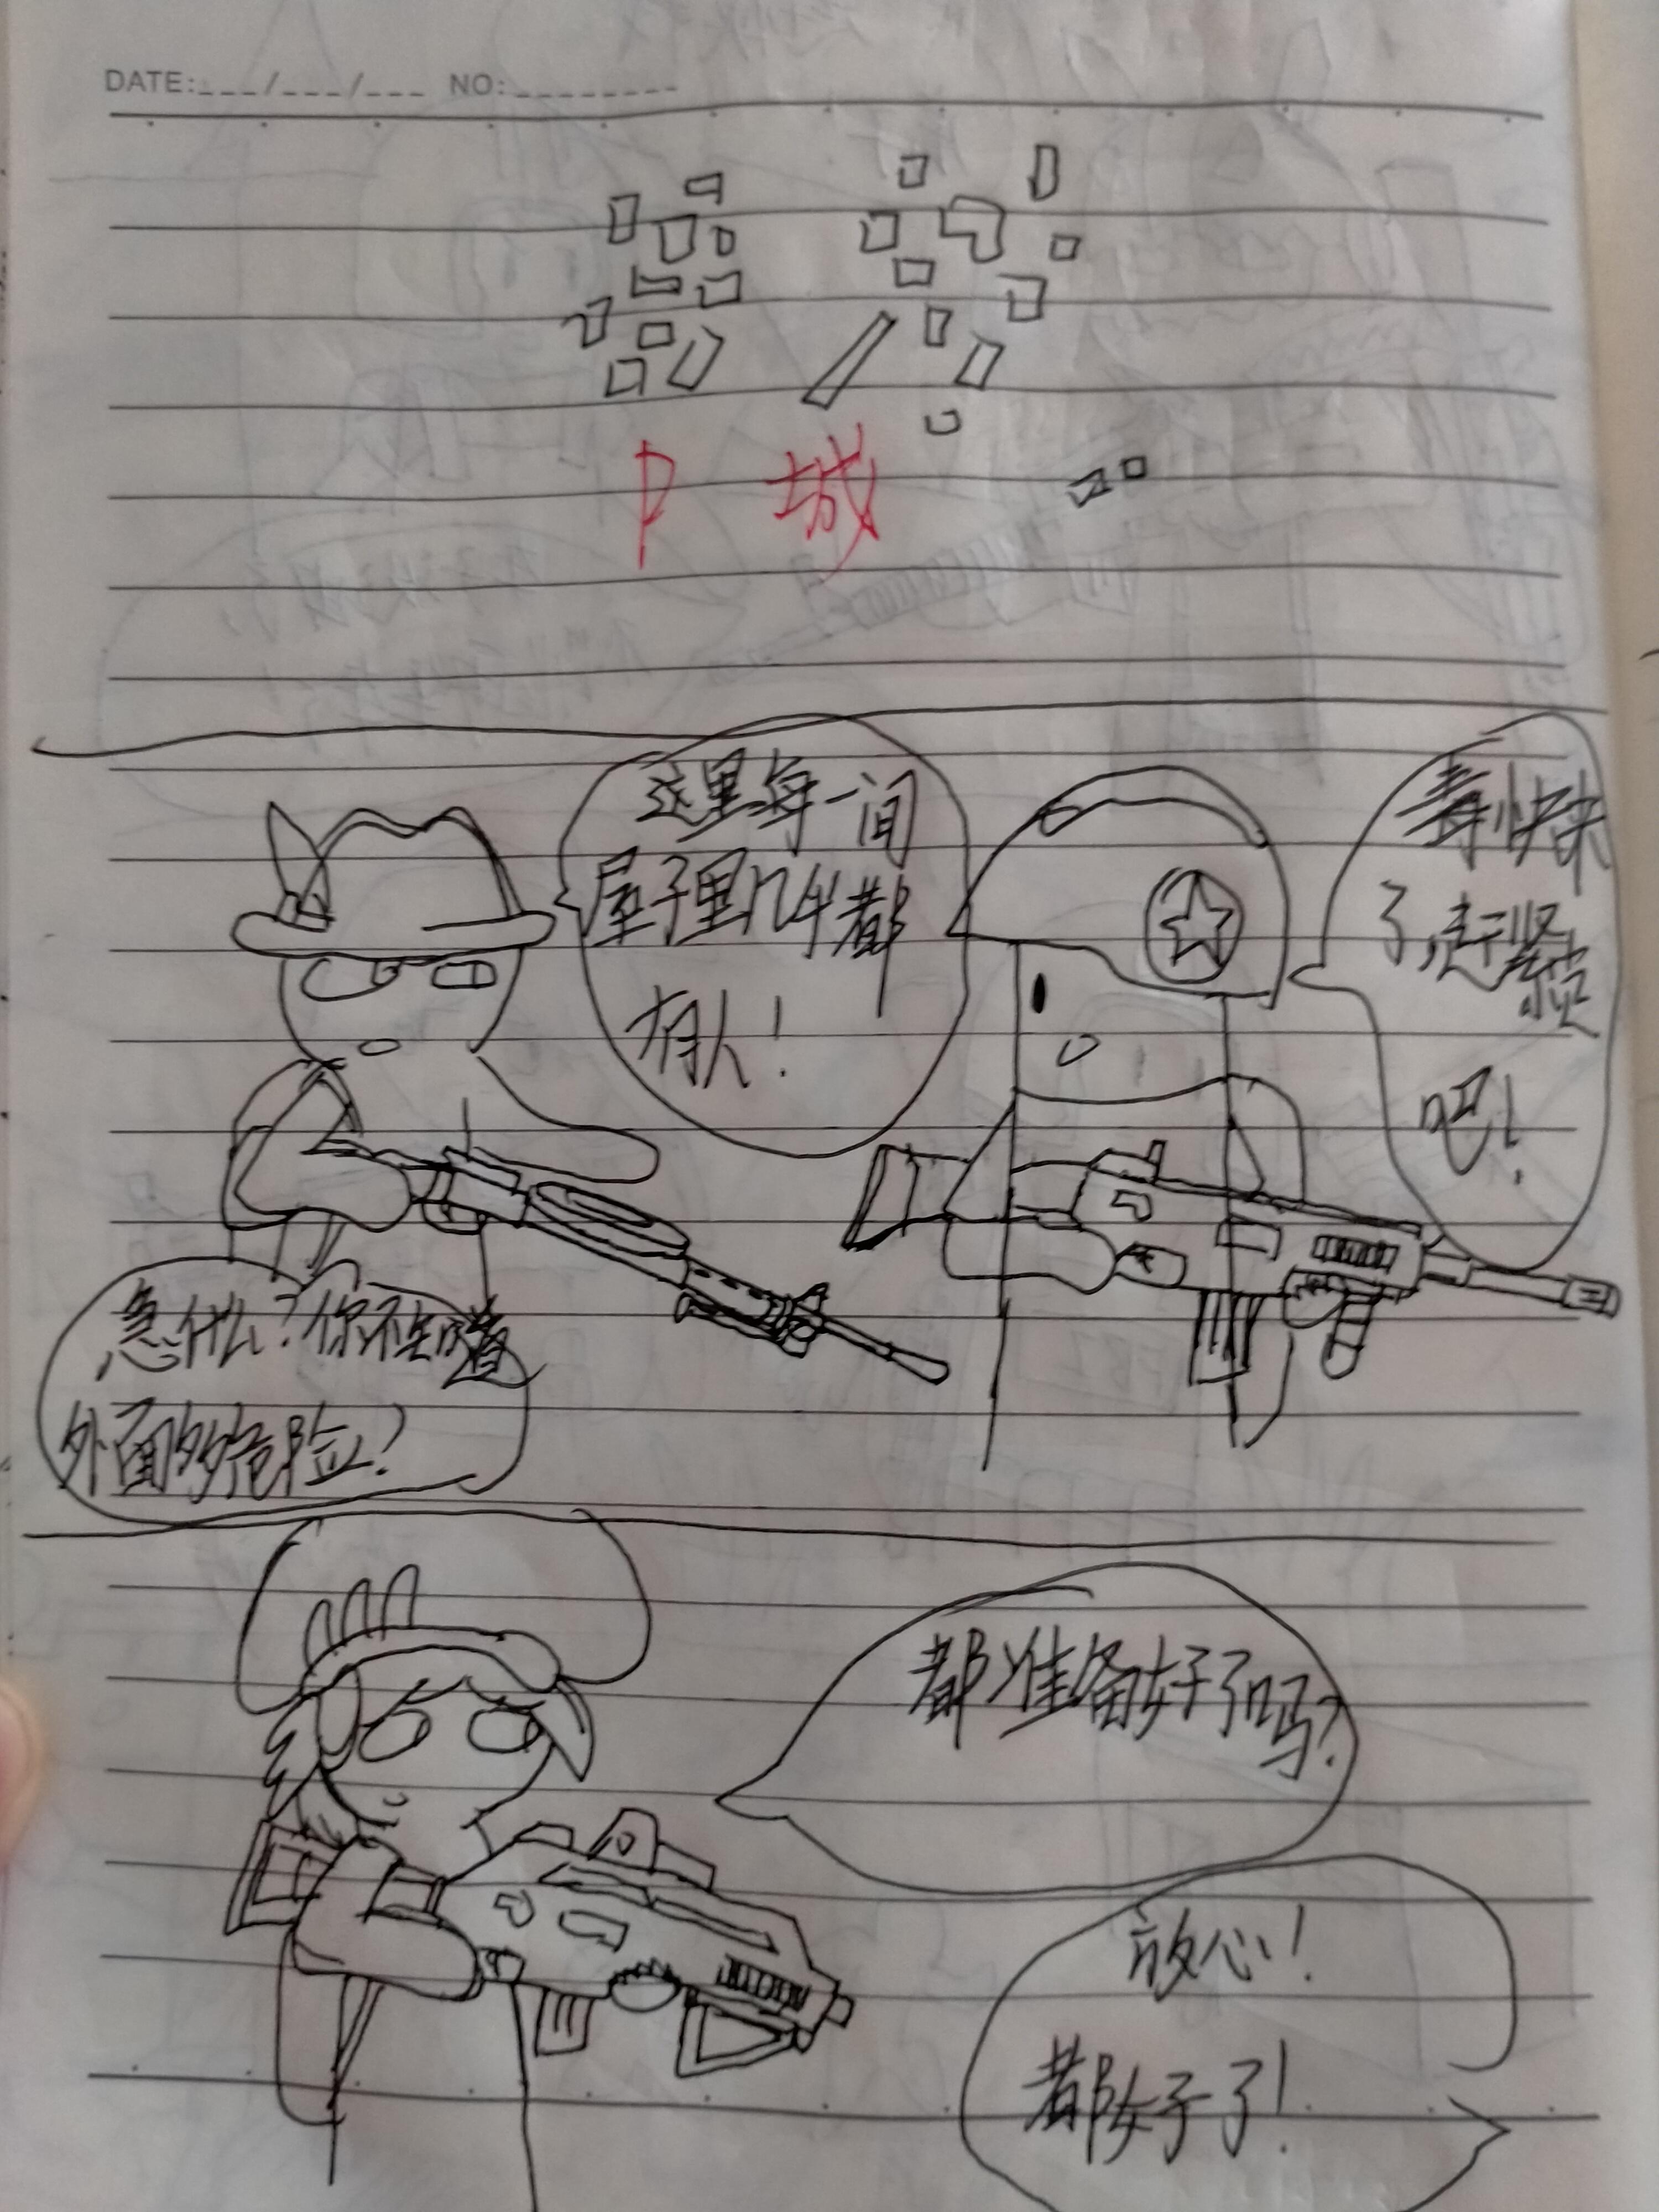 DATE:___/___/___ NO:________
P 城
这里每一间
屋子里几乎都
有人!
毒快来
了,赶紧
点
吧!
急什么?你不知道
外面多危险?
都准备好了吗?
放心!
都好了!